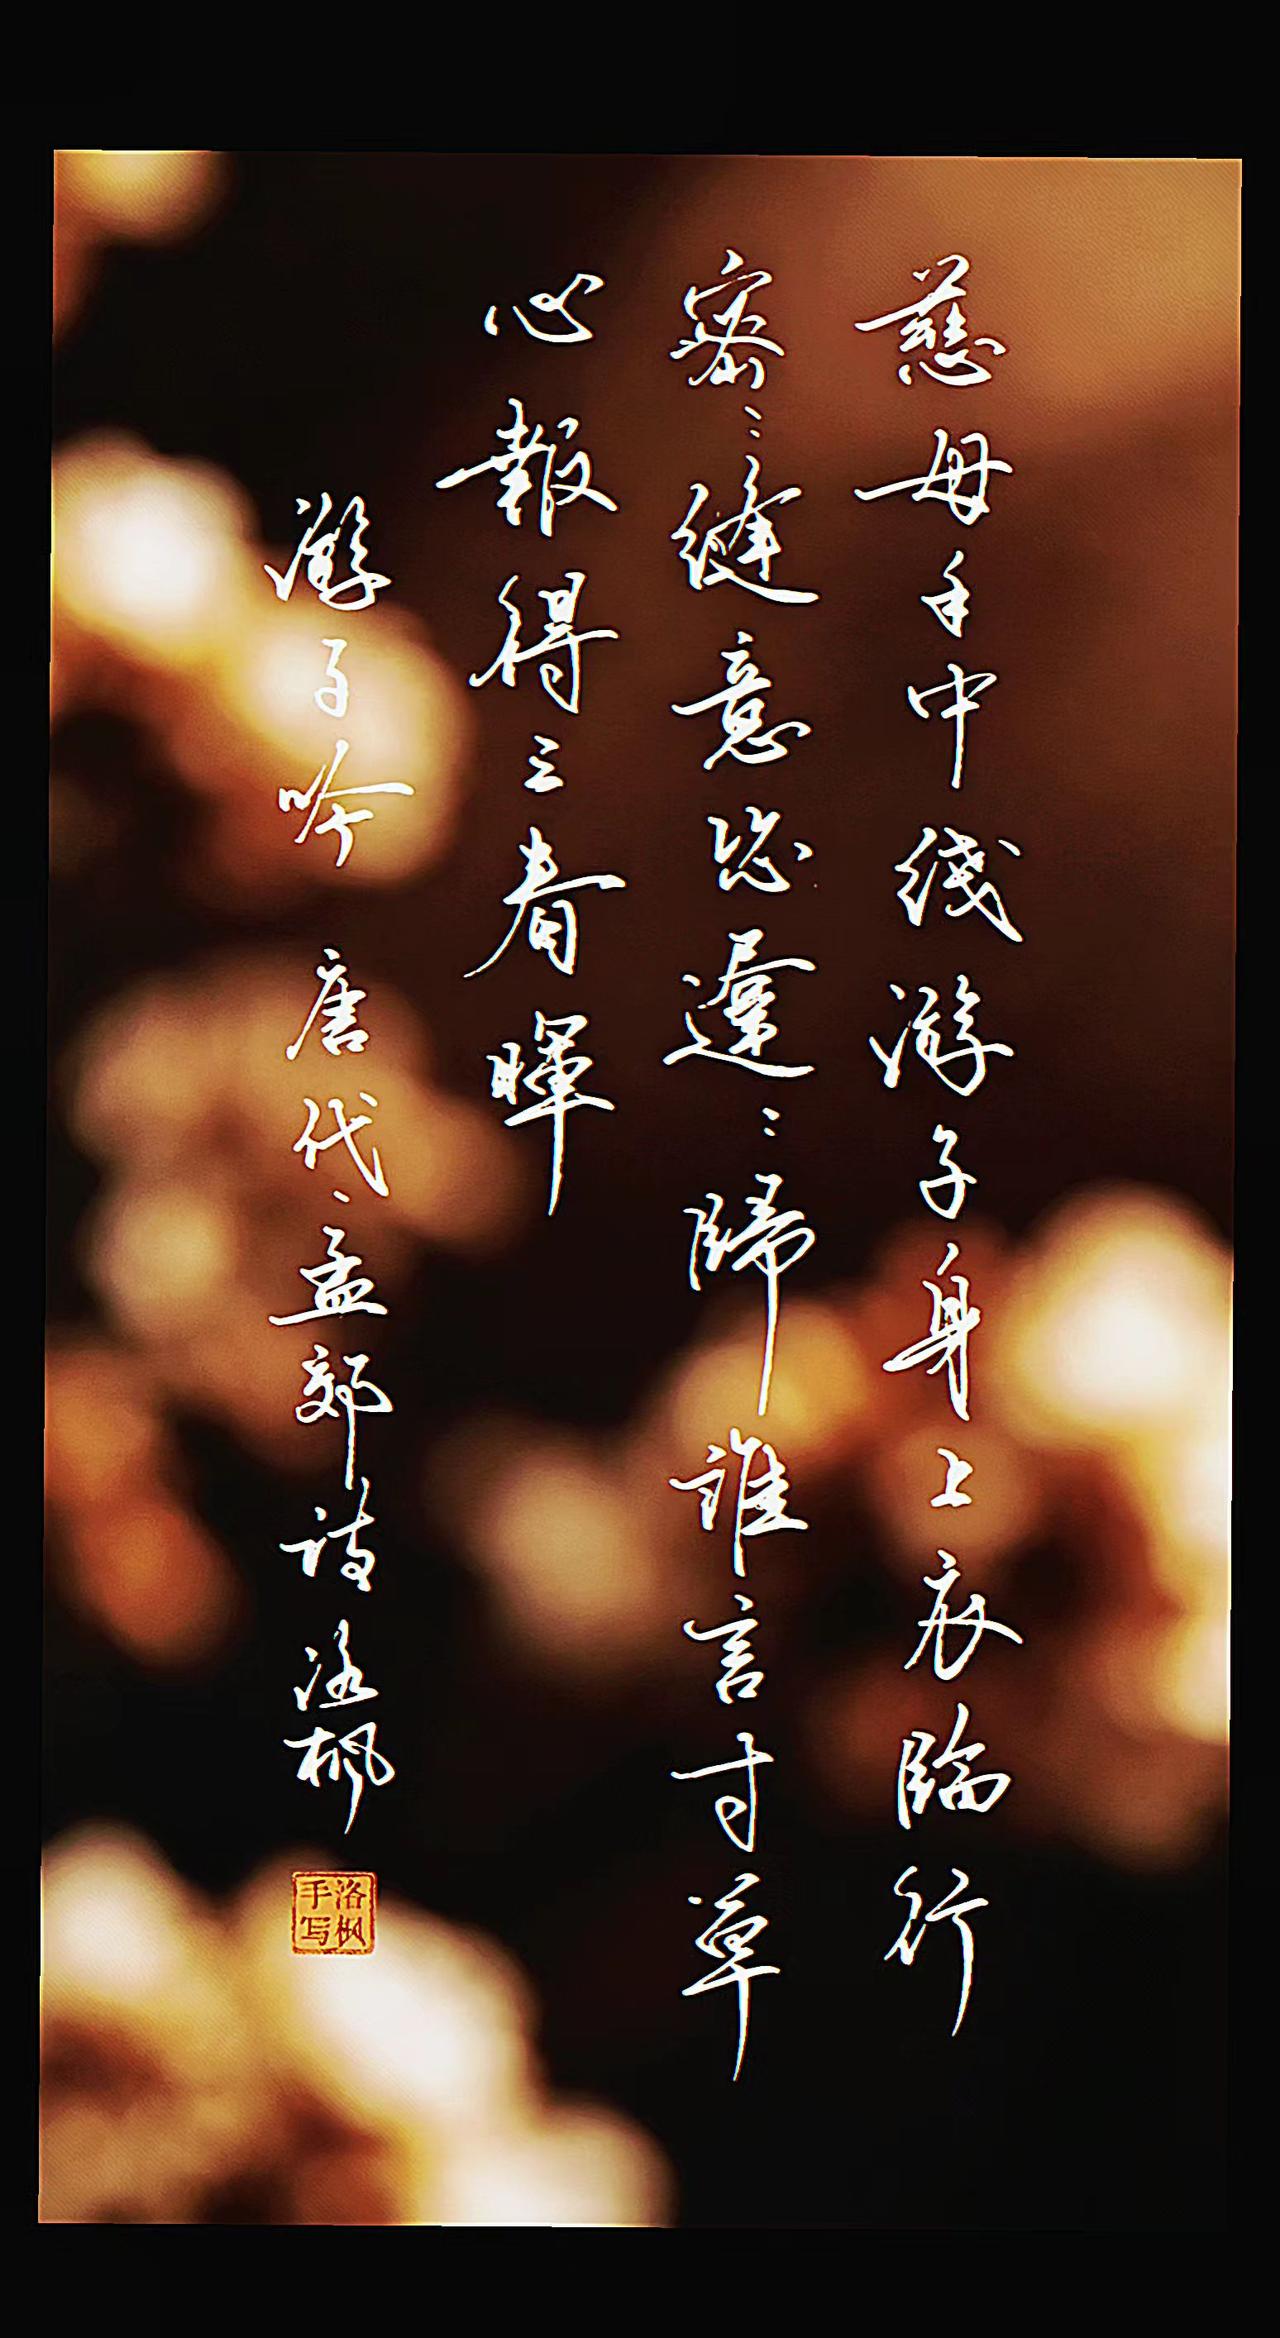 慈母手中线游子身上衣临行
密密缝意恐遲遲歸誰言寸草
心報得三春暉
游子吟 唐代 孟郊诗 洛枫
洛枫
手写